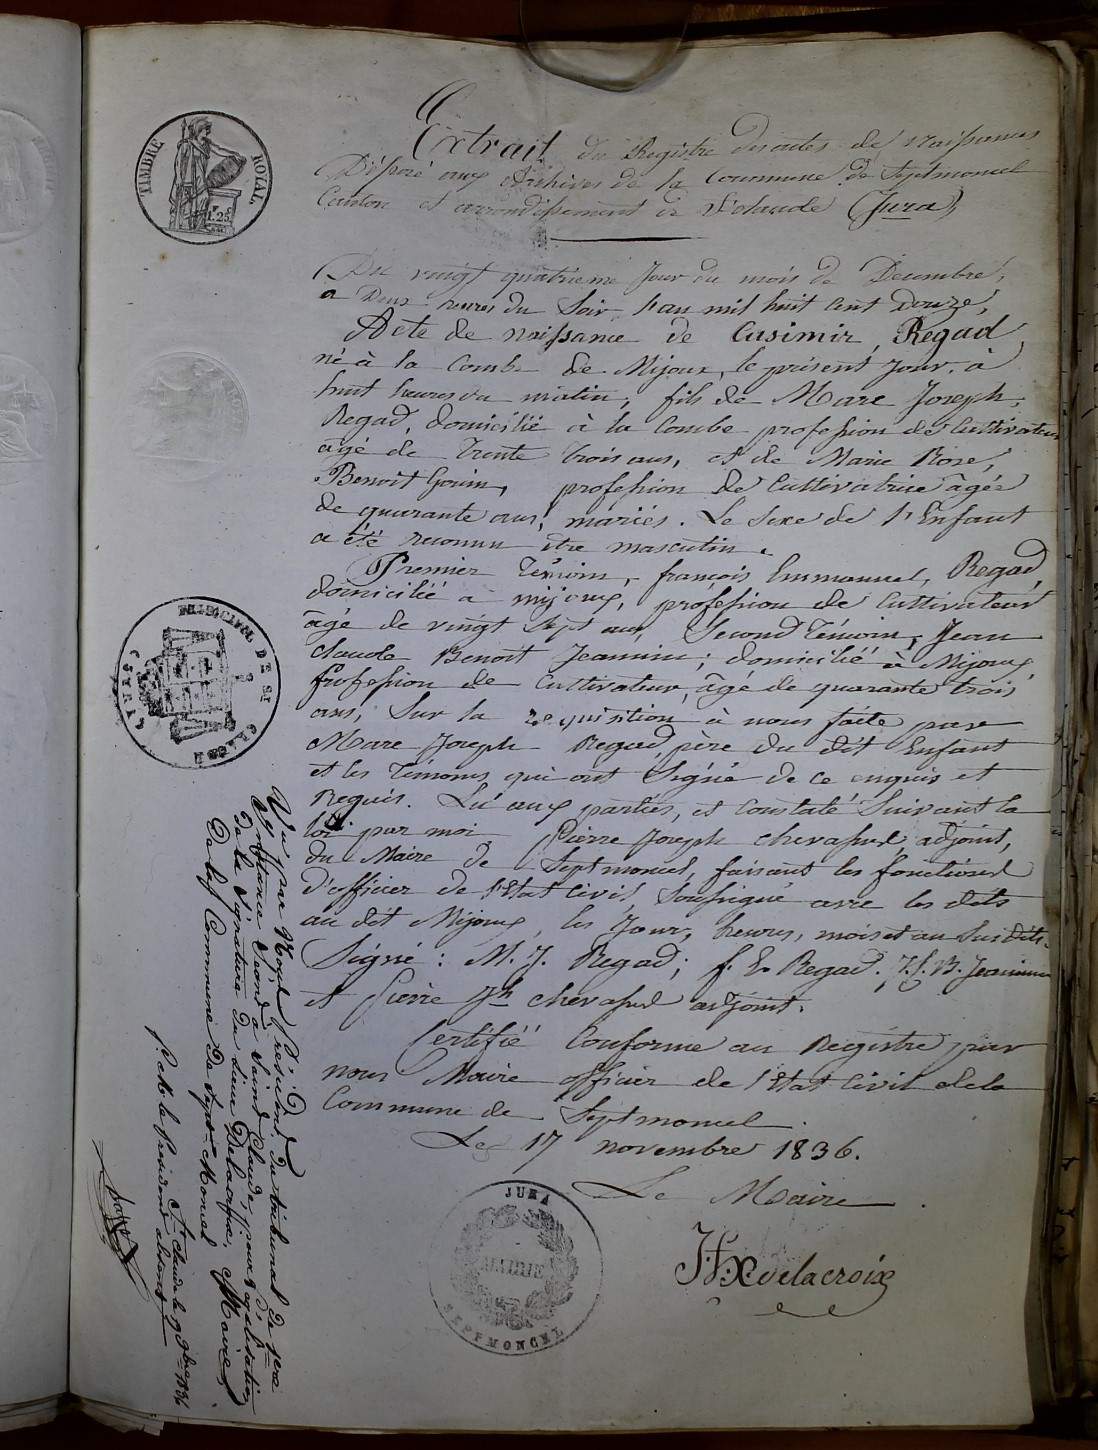 TIMBRE ROYAL
1.25
Extrait du Registre des actes de Naissances
Déposé aux Archives de la Commune de Septmoncel
Canton et arrondissement de St Claude (Jura)
Du vingt quatrieme Jour du mois de Decembre,
à Deux heures du Soir, l'an mil huit cent Douze,
Acte de naissance de Casimir, Regad
né à la Combe de Mijoux, le présent Jour, à
huit heures du matin, fils de Marc Joseph,
Regad, domicilié à la Combe profession de Cultivateur
âgé de Trente trois ans, et de Marie Rose,
Benoit Gouin, profession de Cultivatrice âgée
de quarante ans, mariés. Le Sexe de l'Enfant
a été reconnu être masculin.
Premier Témoin, françois Emmanuel, Regad,
domicilié à mijoux, profession de Cultivateur
âgé de vingt Sept ans, Second Témoin, Jean
claude Benoit Jeannin; domicilié à Mijoux
profession de Cultivateur, âgé de quarante trois
ans, Sur la requisition à nous faite par
Marc Joseph Regad, père du dit Enfant
et les Témoins qui ont Signé de ce enquis et
Requis. Lu aux parties, et Constaté Suivant la
loi par moi Pierre Joseph chevassus adjoint,
du Maire de Septmoncel, faisant les fonctions
d'officier de l'Etat Civil, Soussigné avec les dits
au dit Mijoux, les Jour, heures, mois et an Susdits.
Signé: M. J. Regad; f. E. Regad. J. C. B. Jeannin
et Pierre Jh chevassus adjoint.
Certifié Conforme au Registre par
nous Maire officier de l'Etat Civil de la
Commune de Septmoncel.
Le 17 novembre 1836.
Le Maire
J. F. X. delacroix
JURA
MAIRIE
SEPTMONCEL
Vu par Nous Président du tribunal de 1ere
Instance Séant à Saint Claude, pour légalisation
de la Signature du Sieur Delacroix, Maire
de la Commune de Sept-Moncel
St Claude le 19 9bre 1836
P. Mr le Président absent